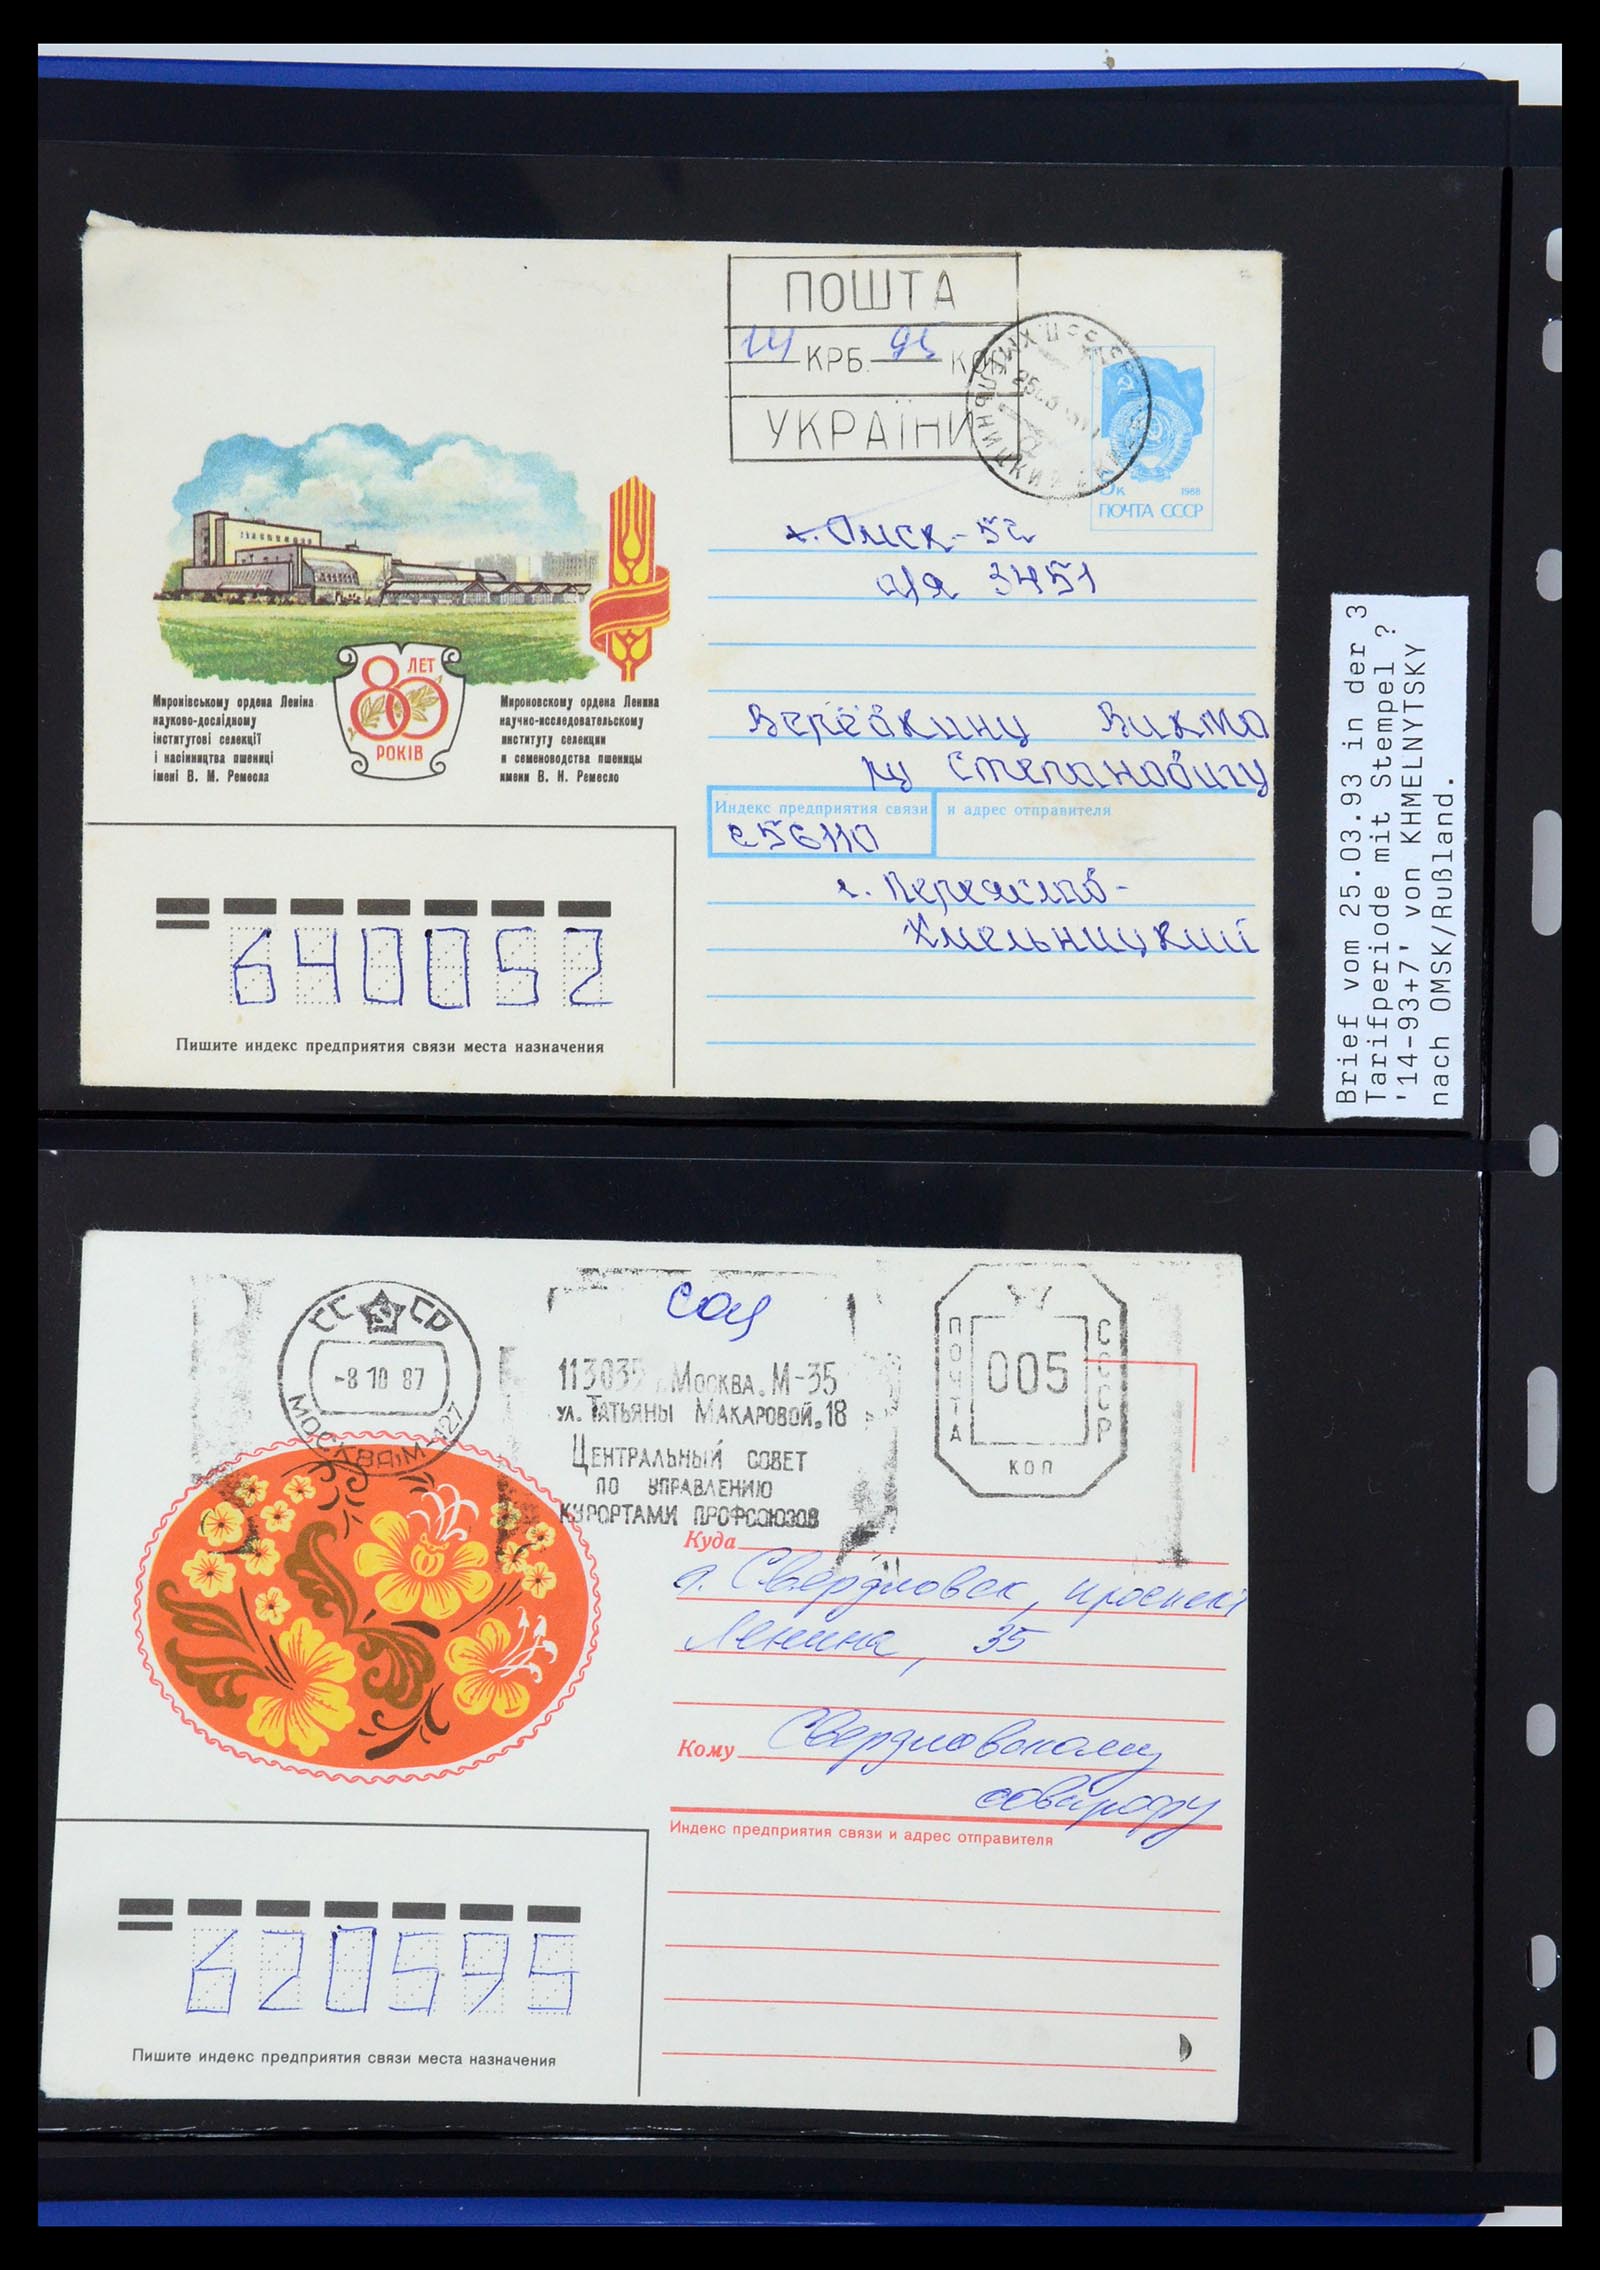 ПОШТА
14 КРБ. 95 КОП
УКРАЇНИ
5к 1988
ПОЧТА СССР
г. Омск-52
а/я 3451
Верёвкину Викто
ру Степановичу
Индекс предприятия связи и адрес отправителя
256110
г. Переяслав-
Хмельницкий
80 ЛЕТ
РОКІВ
Миронівському ордена Леніна
науково-дослідному
інститутові селекції
і насінництва пшениці
імені В. М. Ремесла
Мироновскому ордена Ленина
научно-исследовательскому
институту селекции
и семеноводства пшеницы
имени В. Н. Ремесло
640052
Пишите индекс предприятия связи места назначения
Brief vom 25.03.93 in der 3
Tarifperiode mit Stempel ?
'14-93+7' von KHMELNYTSKY
nach OMSK/Rußland.
СССР
-8 10 87
МОСКВА М-127
соц
113035 Москва. М-35
ул. Татьяны Макаровой. 18
Центральный совет
по управлению
курортами профсоюзов
ПОЧТА СССР
005
коп
Куда
г. Свердловск, проспект
Ленина, 35
Кому Свердловскому
совпрофу
Индекс предприятия связи и адрес отправителя
620595
Пишите индекс предприятия связи места назначения